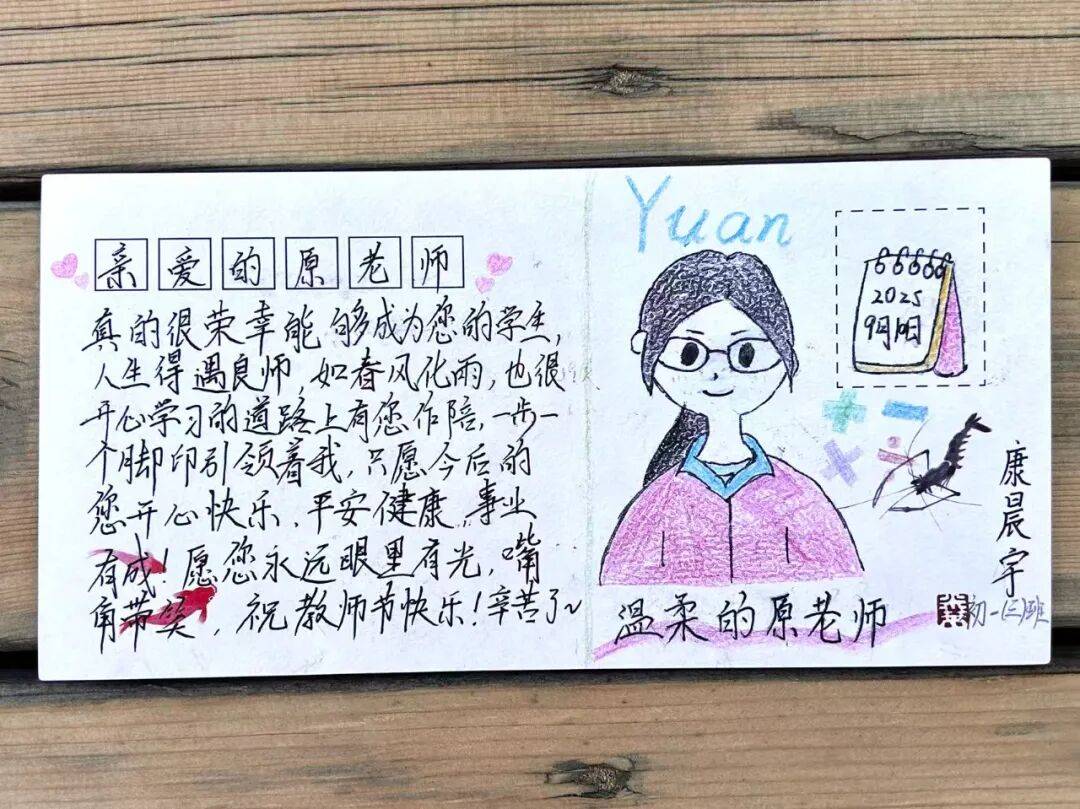 亲爱的原老师
真的很荣幸能够成为您的学生,
人生得遇良师,如春风化雨,也很
开心学习的道路上有您作陪,一步一
个脚印引领着我,只愿今后的
您开心快乐、平安健康,事业
有成!愿您永远眼里有光,嘴
角带笑,祝教师节快乐!辛苦了~
Yuan
2025
9月10日
+ -
× ÷
温柔的原老师
康晨宇
初一(三)班